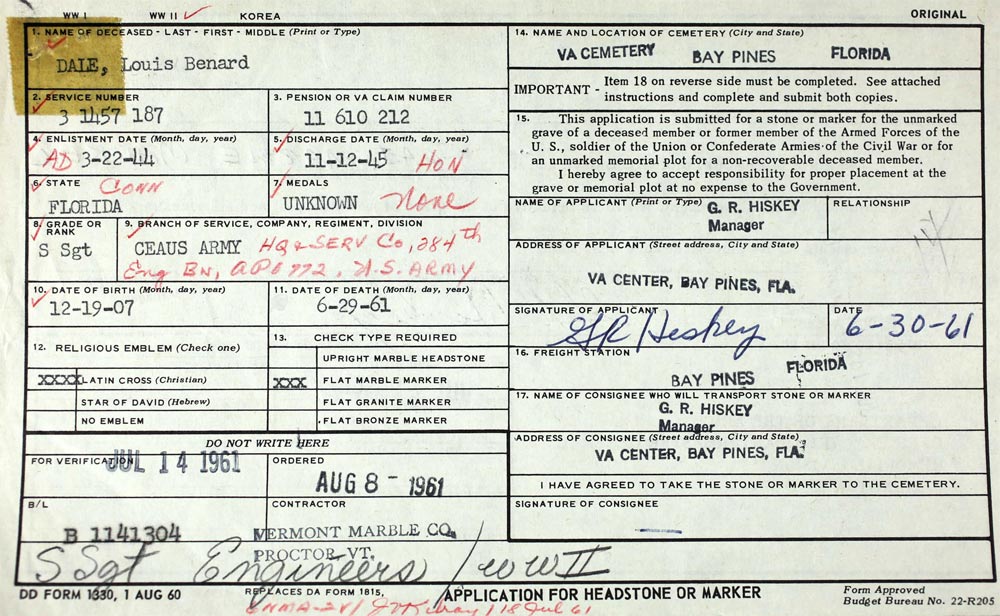 WW I WW II ✓ KOREA ORIGINAL
1. NAME OF DECEASED - LAST - FIRST - MIDDLE (Print or Type)
DALE, Louis Benard
2. SERVICE NUMBER
3 1457 187
3. PENSION OR VA CLAIM NUMBER
11 610 212
4. ENLISTMENT DATE (Month, day, year)
AD 3-22-44
5. DISCHARGE DATE (Month, day, year)
11-12-45 HON
6. STATE CONN
FLORIDA
7. MEDALS
UNKNOWN None
8. GRADE OR RANK
S Sgt
9. BRANCH OF SERVICE, COMPANY, REGIMENT, DIVISION
CEAUS ARMY HQ & SERV Co, 284th
Eng BN, APO 772, U.S. ARMY
10. DATE OF BIRTH (Month, day, year)
12-19-07
11. DATE OF DEATH (Month, day, year)
6-29-61
12. RELIGIOUS EMBLEM (Check one)
XXXX LATIN CROSS (Christian)
STAR OF DAVID (Hebrew)
NO EMBLEM
13. CHECK TYPE REQUIRED
UPRIGHT MARBLE HEADSTONE
XXX FLAT MARBLE MARKER
FLAT GRANITE MARKER
FLAT BRONZE MARKER
DO NOT WRITE HERE
FOR VERIFICATION
JUL 14 1961
ORDERED
AUG 8 - 1961
B/L
B 1141304
CONTRACTOR
VERMONT MARBLE CO.
PROCTOR, VT.
S Sgt Engineers / WW II
14. NAME AND LOCATION OF CEMETERY (City and State)
VA CEMETERY BAY PINES FLORIDA
IMPORTANT - Item 18 on reverse side must be completed. See attached
instructions and complete and submit both copies.
15. This application is submitted for a stone or marker for the unmarked
grave of a deceased member or former member of the Armed Forces of the
U. S., soldier of the Union or Confederate Armies of the Civil War or for
an unmarked memorial plot for a non-recoverable deceased member.
I hereby agree to accept responsibility for proper placement at the
grave or memorial plot at no expense to the Government.
NAME OF APPLICANT (Print or Type) G. R. HISKEY
Manager
RELATIONSHIP
ADDRESS OF APPLICANT (Street address, City and State)
VA CENTER, BAY PINES, FLA.
SIGNATURE OF APPLICANT
GR Hiskey
DATE
6-30-61
16. FREIGHT STATION
BAY PINES FLORIDA
17. NAME OF CONSIGNEE WHO WILL TRANSPORT STONE OR MARKER
G. R. HISKEY
Manager
ADDRESS OF CONSIGNEE (Street address, City and State)
VA CENTER, BAY PINES, FLA.
I HAVE AGREED TO TAKE THE STONE OR MARKER TO THE CEMETERY.
SIGNATURE OF CONSIGNEE
DD FORM 1330, 1 AUG 60
REPLACES DA FORM 1815,
APPLICATION FOR HEADSTONE OR MARKER
Form Approved
Budget Bureau No. 22-R205
18 Jul 61